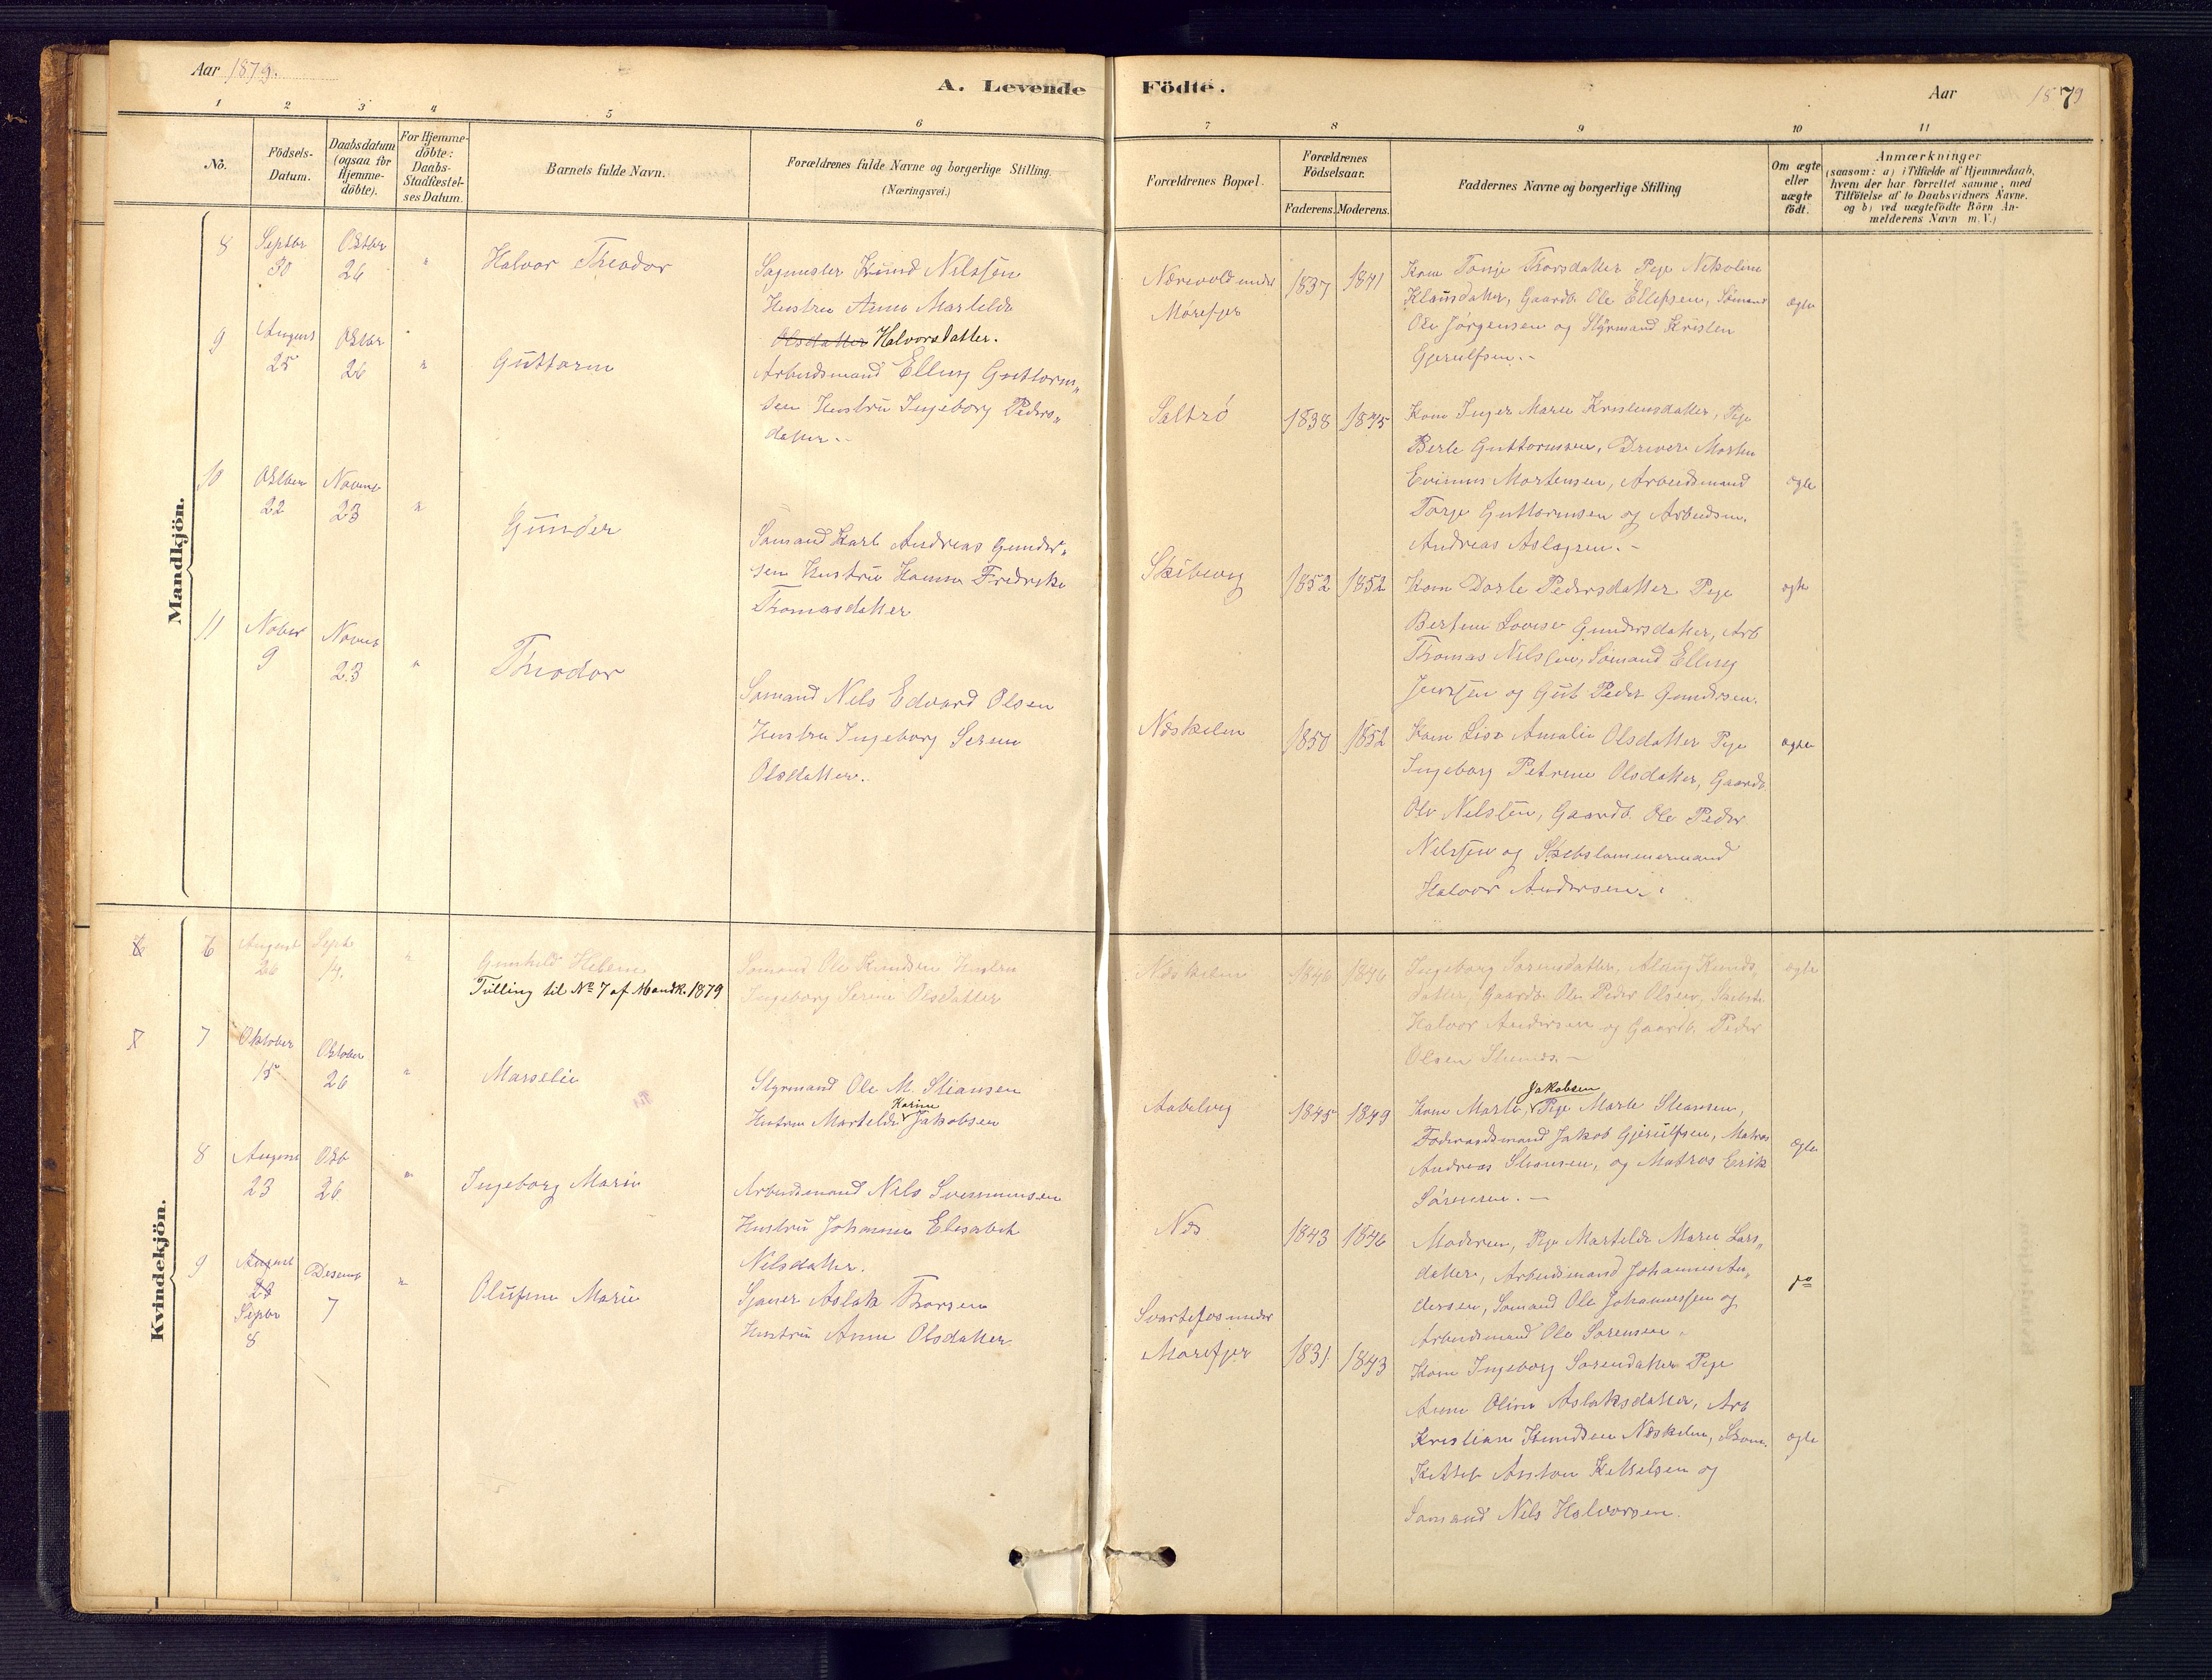 Aar 1879.
A. Levende Födte.
Aar 1879
1 2 3 4 5 6 7 8 9 10 11
No.
Födsels-Datum.
Daabsdatum (ogsaa for Hjemme-döbte).
For Hjemme-döbte: Daabs-Stadfæstel-ses Datum.
Barnets fulde Navn.
Forældrenes fulde Navne og borgerlige Stilling.
(Næringsvei.)
Forældrenes Bopæl.
Forældrenes Födselsaar.
Faderens. Moderens.
Faddernes Navne og borgerlige Stilling
Om ægte eller uægte födt.
Anmærkninger
(saasom: a) i Tilfælde af Hjemmedaab,
hvem der har forrettet samme, med
Tilföielse af to Daabsvidners Navne,
og b) ved uægtefödte Börn An-
melderens Navn m. V.)
Mandkjön.
8 Septbr 30 Oktbr 26 " Halvor Theodor
Sagmester Knud Nilssen
Hustru Anne Martilde
Olsdatter Halvorsdatter.
Nærevold under
Mörefjær
1837 1841
Kone Tonje Thorsdatter Pige Nikoline
Klausdatter, Gaardb. Ole Ellefsen, Sömand
Ole Jörgensen og Styrmand Kristen
Gjerulfsen.-
ægte
9 August 25 Oktbr 26 " Guttorm
Arbeidsmand Elling Guttorm„
sen Hustru Ingeborg Peders„
datter.-
Saltrö
1838 1845
Kone Inger Maren Kristensdatter, Pige
Berte Guttormsen, Driver Morten
Evinus Mortensen, Arbeidsmand
Torje Guttormsen og Arbeidsm.
Andreas Aslagsen.-
ægte
10 Oktber 22 Novmb 23 " Gunder
Sömand Karl Andreas Gunder„
sen Hustru Hanna Fredrikke
Thomasdatter
Skibevig
1852 1852
Kone Dorte Pedersdatter Pige
Bertine Lovise Gundersdatter, Arb
Thomas Nilssen, Sömand Elling
Jensen og Gut Peder Gundersen.
ægte
11 Nober 9 Novmb 23 " Theodor
Sömand Nils Edvard Olsen
Hustru Ingeborg Serine
Olsdatter.
Næskilen
1850 1852
Kone Lise Amalie Olsdatter Pige
Ingeborg Petrine Olsdatter, Gaardb.
Ole Nilssen, Gaardb. Ole Peder
Nilssen og Skibstømmermand
Halvor Andersen.
ægte
Kvindekjön.
6 6 August 26 Sept 14. " Gunhild Helene
Tvilling til No 7 af Mandk. 1879
Sömand Ole Knudsen Hustru
Ingeborg Serine Olsdatter
Næskilen
1846 1846
Ingeborg Sörensdatter, Aslaug Knuds„
datter, Gaardb. Ole Peder Olsen, Skibst.
Halvor Andersen og Gaardb. Peder
Olsen
ægte
7 7 Oktober 15 Oktober 26 " Marselie
Styrmand Ole M. Stiansen
Hustru Martilde Karine Jakobsen
1845 1849
Kone Marte Jakobsen Pige Marte Stiansen,
Jakob Gjerulfsen, Matros
Andreas Stiansen, og Matros Erik
Sörensen.-
Ægte
8 August 23 Oktb 26 " Ingeborg Marie
Arbeidsmand Nils Svennumsen
Hustru Johanne Elisabet
Nilsdatter.
Næs
1843 1846
Moderen, Pige Martilde Maren Lars„
datter, Arbeidsmand Johannes An„
dersen, Sömand Ole Johannessen og
Arbeidsmand Ole Sörensen.
do
9 August 23 Sepbr 8 Desemb 7 " Olufine Marie
Sjauer Aslak Thorsen
Hustru Anne Olsdatter.
Svartefos under
Mörefjær
1831 1843
Kone Ingeborg Sörendatter Pige
Anne Oline Aslaksdatter, Arb
Kristian Knudsen Næskilen, Skom.
Kittel Anton Kittelsen og
Sömand Nils Halvorsen.
ægte